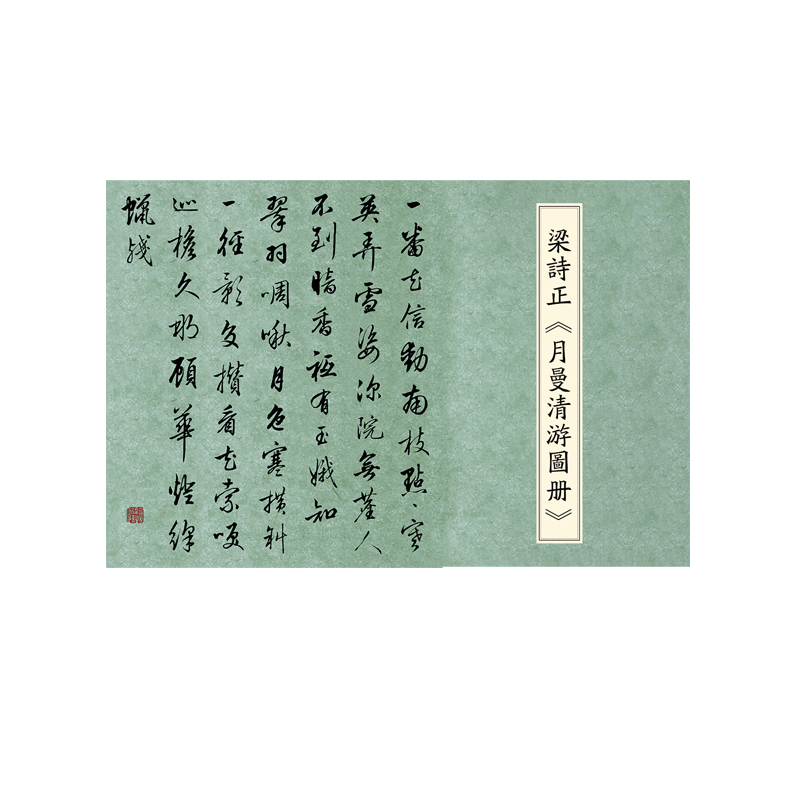 梁詩正《月曼清游圖册》
一番花信動南枝點點寒
英弄雪姿深院無塵人
不到暗香祗有玉娥知
翠羽啁啾月色寒橫斜
一徑影多攢看花索咲
巡檐久却顧華燈絳
蠟殘